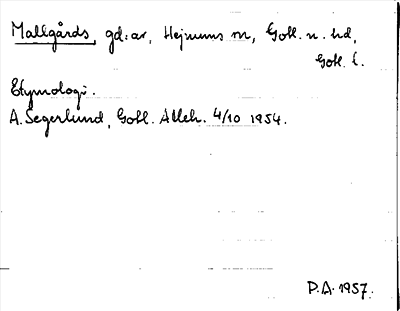 Mallgårds, gd:ar, Hejnums sn, Gotl. n. hd,
Gotl. l.
Etymologi.
A. Segerlund, Gotl. Alleh. 4/10 1954.
P.A. 1957.